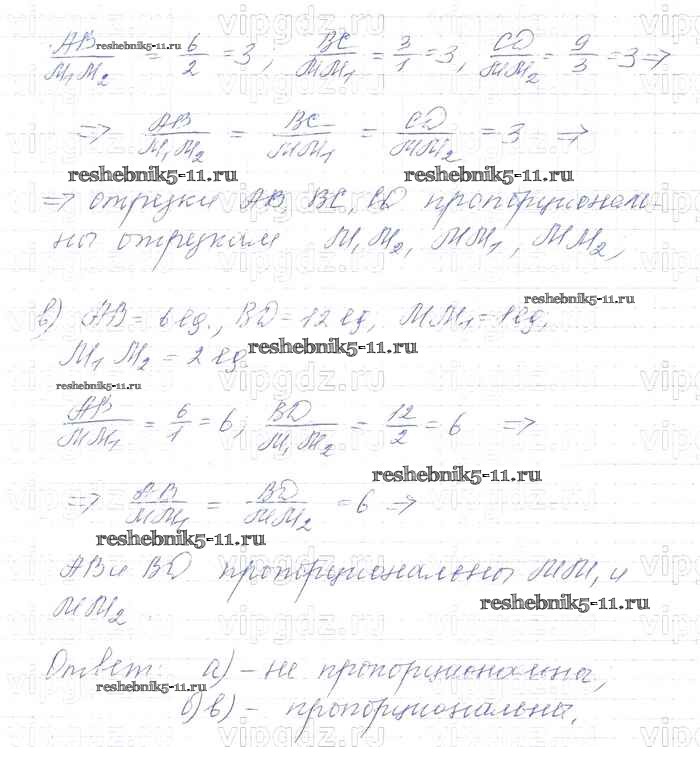 AB/M₁M₂ = 6/2 = 3, BC/MM₁ = 3/1 = 3, CD/MM₂ = 9/3 = 3 ⇒
reshebnik5-11.ru
⇒ AB/M₁M₂ = BC/MM₁ = CD/MM₂ = 3 ⇒
reshebnik5-11.ru reshebnik5-11.ru
⇒ отрезки AB, BC, CD пропорционалъ-
ны отрезкам M₁M₂, MM₁, MM₂,
reshebnik5-11.ru
в) AB = 6 ед., BD = 12 ед, MM₁ = 1 ед,
M₁M₂ = 2 ед.
reshebnik5-11.ru
reshebnik5-11.ru
AB/MM₁ = 6/1 = 6, BD/M₁M₂ = 12/2 = 6 ⇒
reshebnik5-11.ru
⇒ AB/MM₁ = BD/MM₂ = 6 ⇒
reshebnik5-11.ru
AB и BD пропорциональны MM₁ и
MM₂.
reshebnik5-11.ru
Ответ: а) – не пропорциональны,
reshebnik5-11.ru
б) в) – пропорциональны.
vipgdz.ru